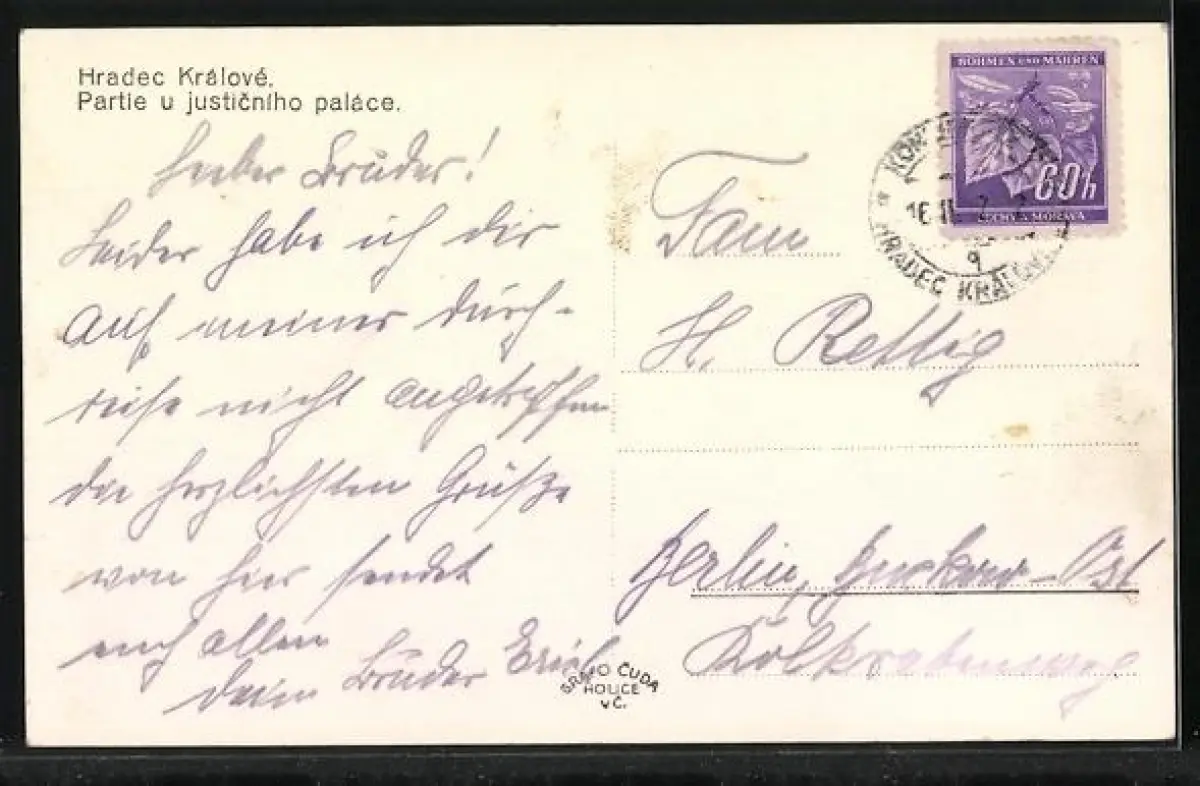 Hradec Králové.
Partie u justičního paláce.
Lieber Bruder!
Leider habe ich dir
auf meiner durch-
reise nicht angetroffen
die herzlichsten Grüße
von hier sendet
euch allen
dein Bruder Erich
BÖHMEN UND MÄHREN
60h
ČECHY A MORAVA
16.II.
9
HRADEC KRÁLOVÉ
Fam
H. Rettig
Berlin, Buckow-Ost
Kolkrabenweg
GRAFO ČUDA
HOLICE
v Č.